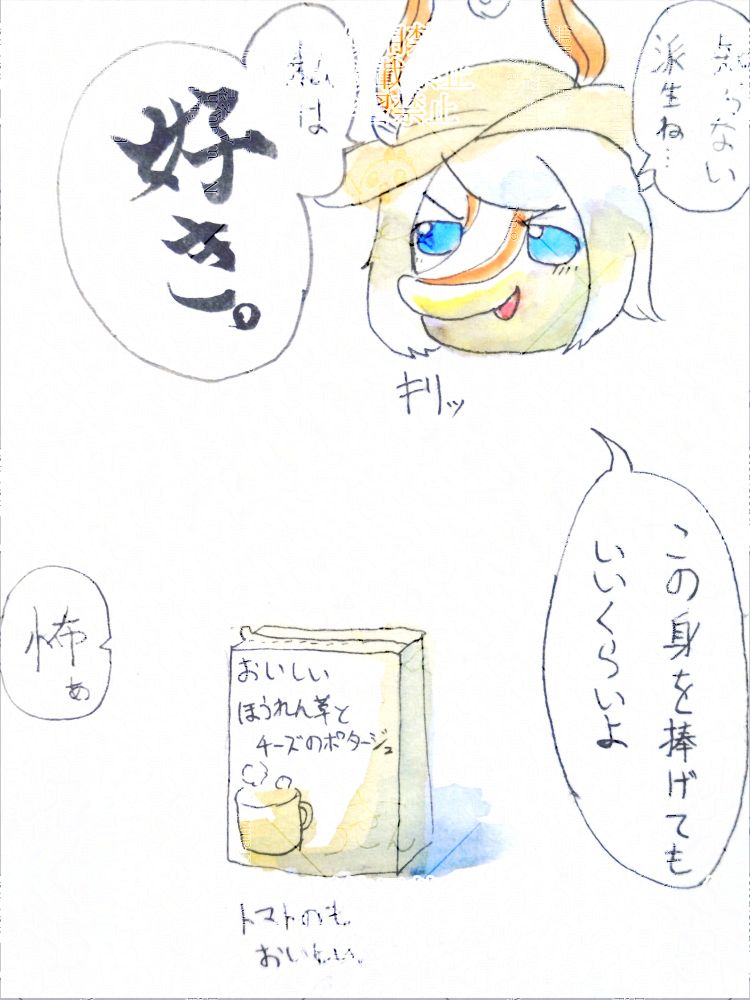 知らない
派生ね…
私は
好き。
キリッ
この身を捧げても
いいくらいよ
怖ぁ
おいしい
ほうれん草と
チーズのポタージュ
トマトのも
おいしい。